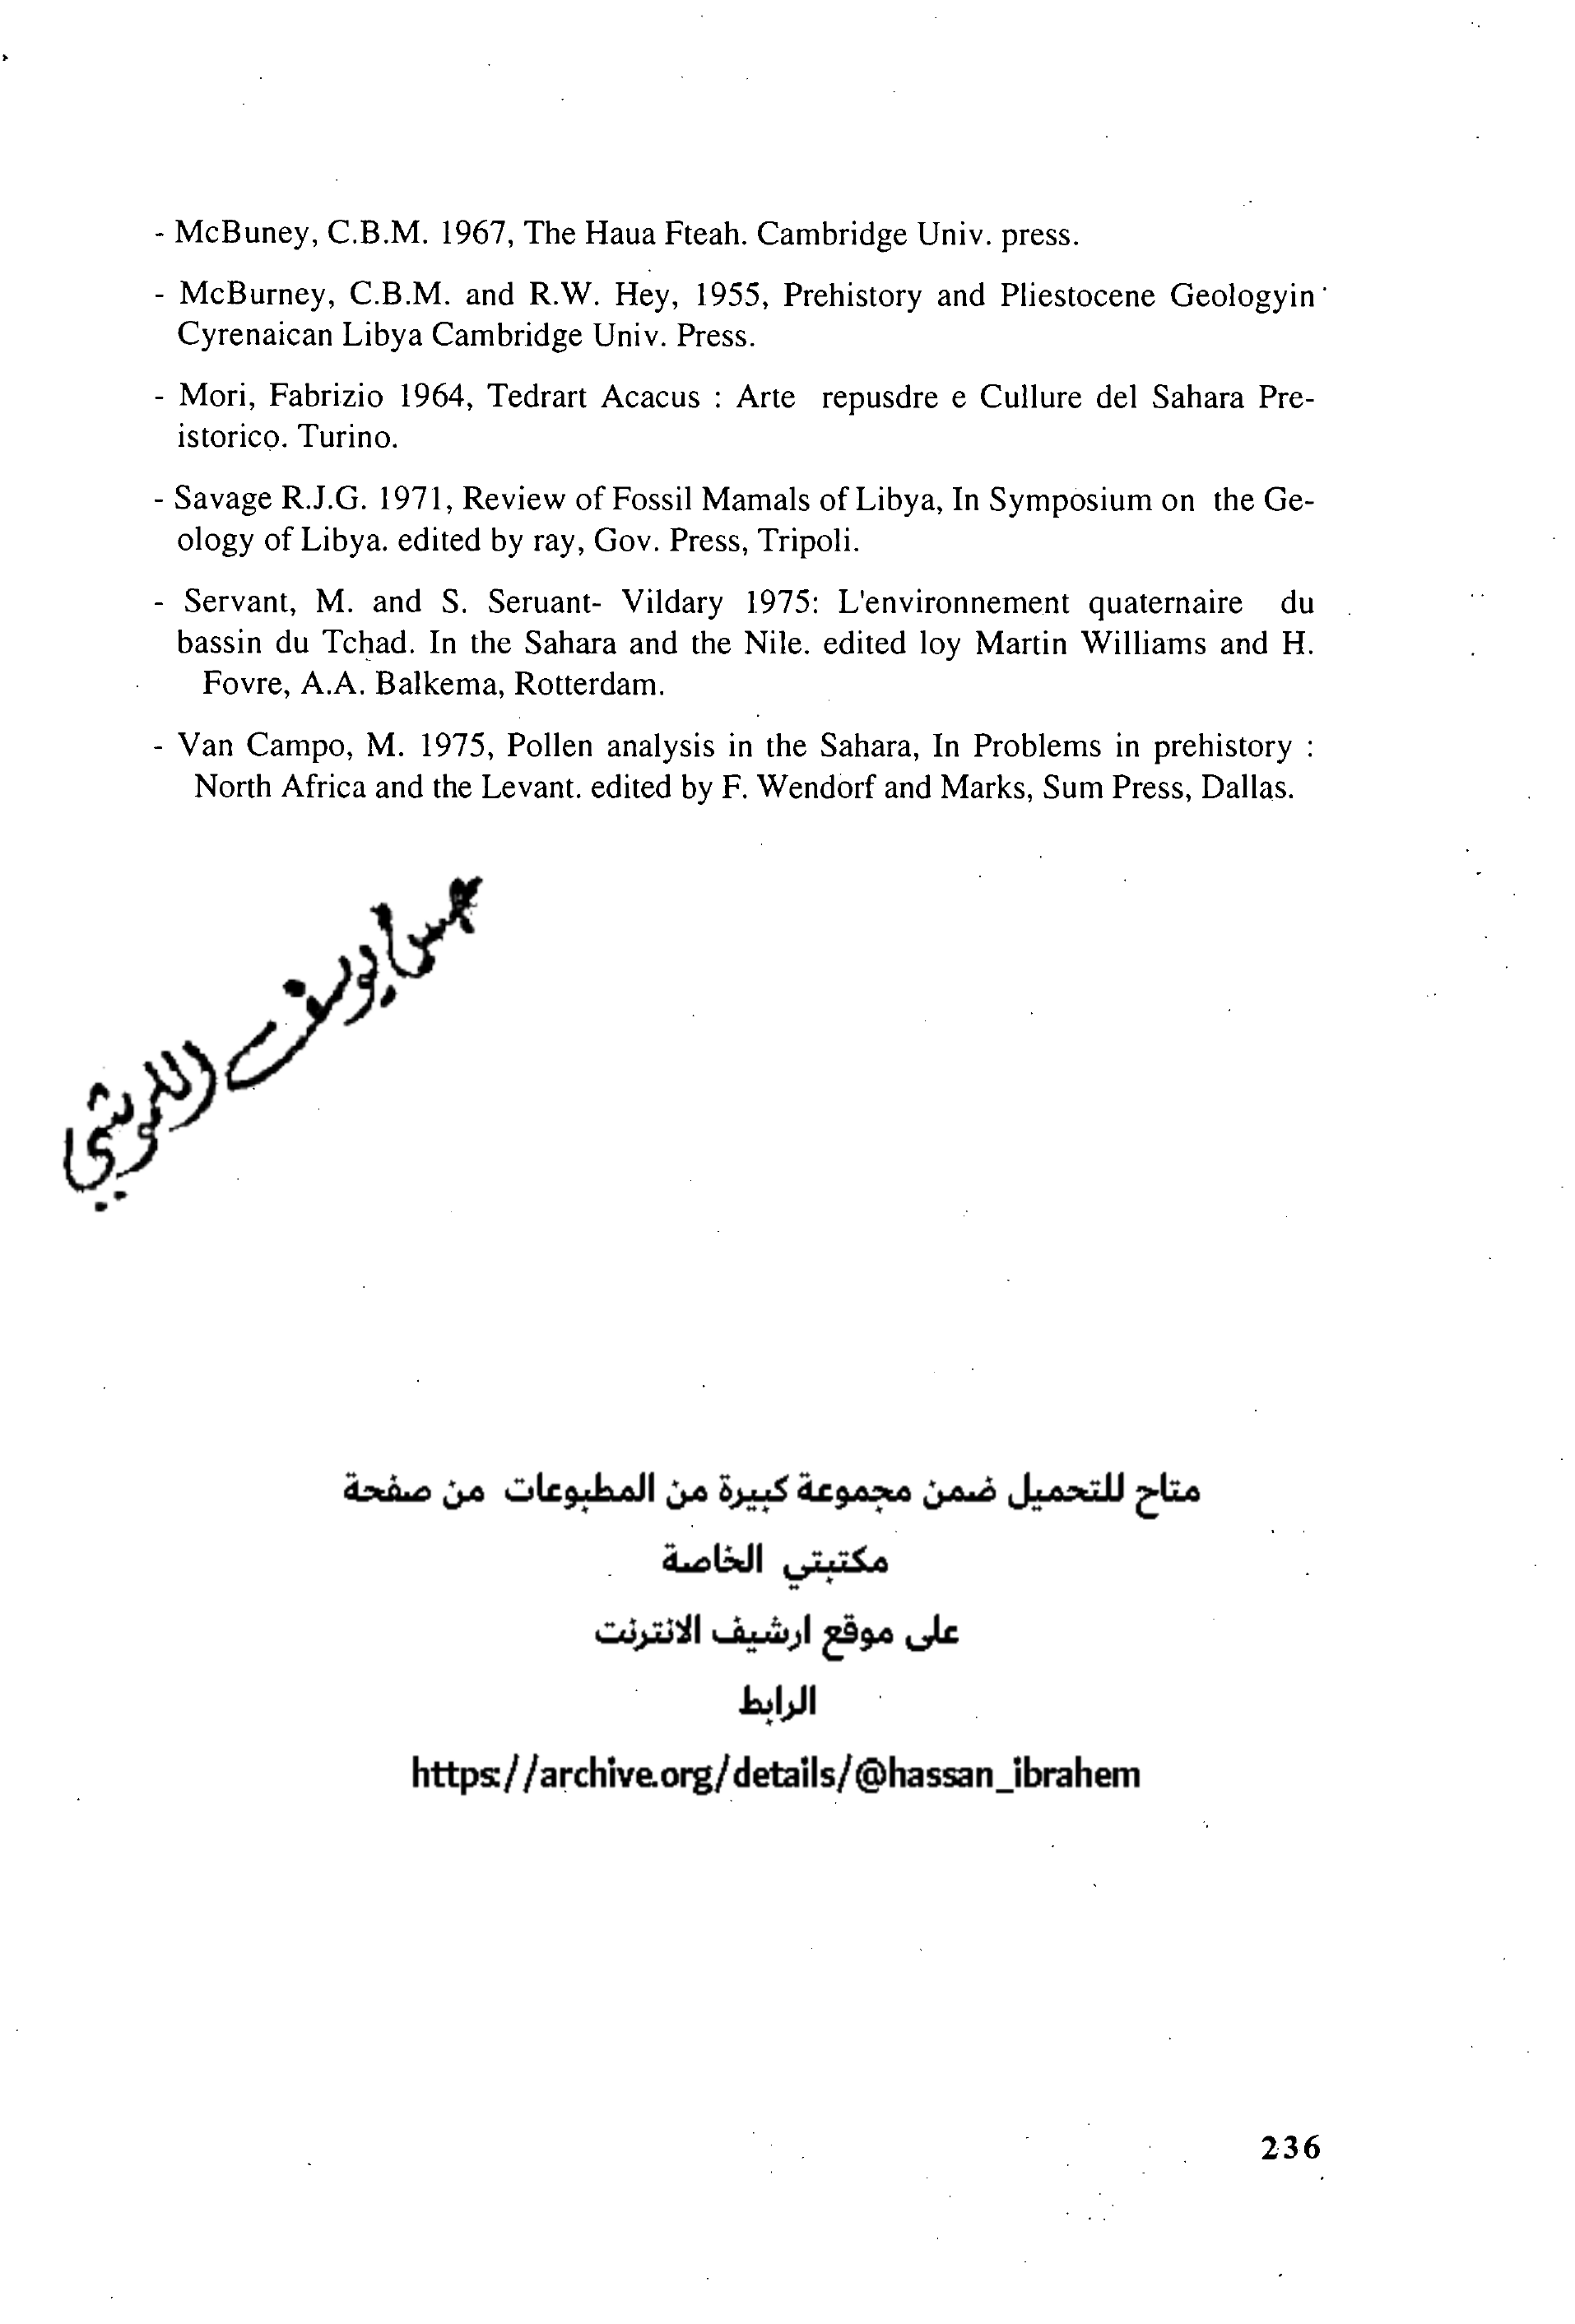 - McBuney, C.B.M. 1967, The Haua Fteah. Cambridge Univ. press.
- McBurney, C.B.M. and R.W. Hey, 1955, Prehistory and Pliestocene Geologyin
Cyrenaican Libya Cambridge Univ. Press.
- Mori, Fabrizio 1964, Tedrart Acacus : Arte repusdre e Cullure del Sahara Pre-
istorico. Turino.
- Savage R.J.G. 1971, Review of Fossil Mamals of Libya, In Symposium on the Ge-
ology of Libya. edited by ray, Gov. Press, Tripoli.
- Servant, M. and S. Seruant- Vildary 1975: L'environnement quaternaire du
bassin du Tchad. In the Sahara and the Nile. edited loy Martin Williams and H.
Fovre, A.A. Balkema, Rotterdam.
- Van Campo, M. 1975, Pollen analysis in the Sahara, In Problems in prehistory :
North Africa and the Levant. edited by F. Wendorf and Marks, Sum Press, Dallas.
يوسف
متاح للتحميل ضمن مجموعة كبيرة من المطبوعات من صفحة
مكتبتي الخاصة
على موقع ارشيف الانترنت
الرابط
https://archive.org/details/@hassan_ibrahem
236